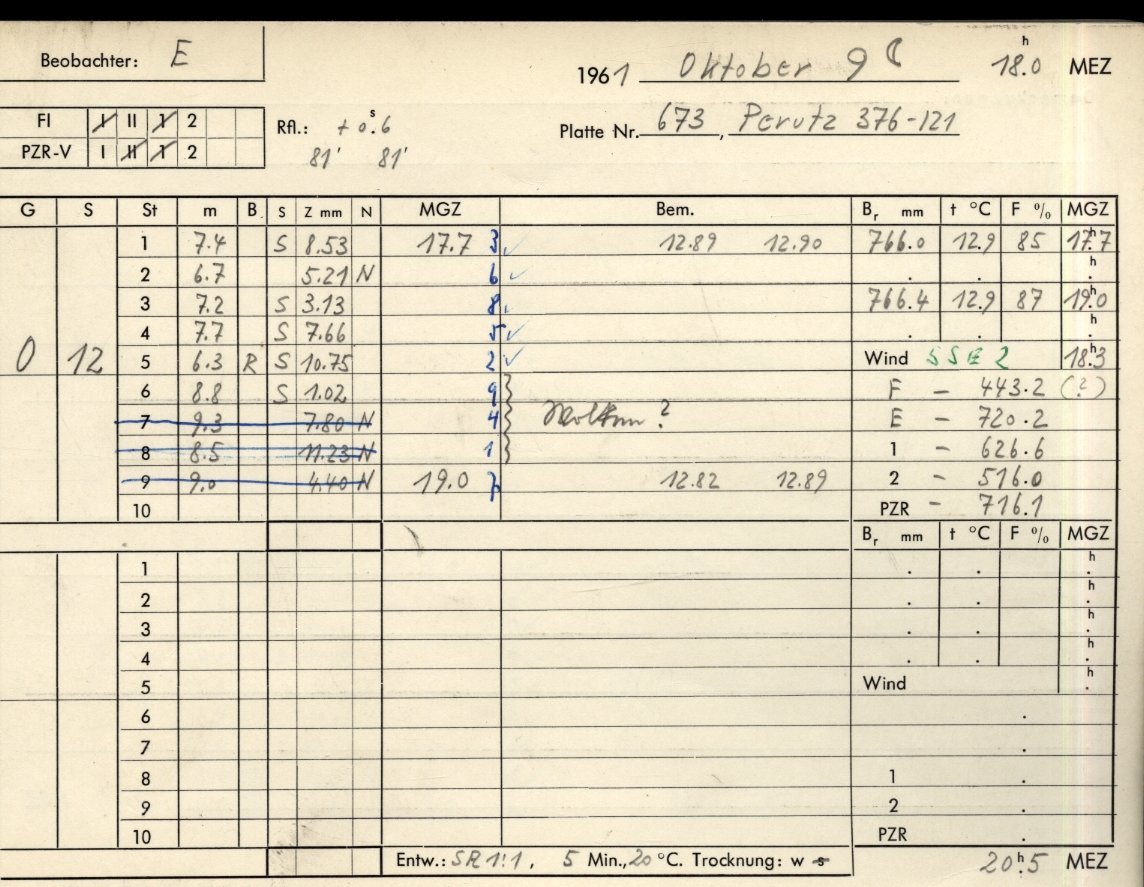 Beobachter: E
1961 Oktober 9 ☾ 18.0 h MEZ
FI I II 1 2
PZR-V I II 1 2
Rfl.: + 0.6 s
81' 81'
Platte Nr. 673, Perutz 376-121
G S St m B S Z mm N MGZ Bem. Br mm t °C F % MGZ
0 12
1 7.4 S 8.53 17.7 3 ✓ 12.89 12.90 766.0 12.9 85 17.7 h
2 6.7 5.21 N 6 ✓ . . . h
3 7.2 S 3.13 8 766.4 12.9 87 19.0 h
4 7.7 S 7.66 5 ✓ . . . h
5 6.3 R S 10.75 2 ✓ Wind SSE 2 18.3 h
6 8.8 S 1.02 9 F – 443.2 (?)
7 9.3 7.80 N 4 Wolken? E – 720.2
8 8.5 11.23 N 1 1 – 626.6
9 9.0 4.40 N 19.0 7 12.82 12.89 2 – 516.0
10 PZR – 716.1
Br mm t °C F % MGZ
1 . . . h
2 . . . h
3 . . . h
4 . . . h
5 Wind . h
6 .
7 .
8 1 .
9 2 .
10 PZR .
Entw.: SR 1:1, 5 Min., 20 °C. Trocknung: w s
20.5 h MEZ